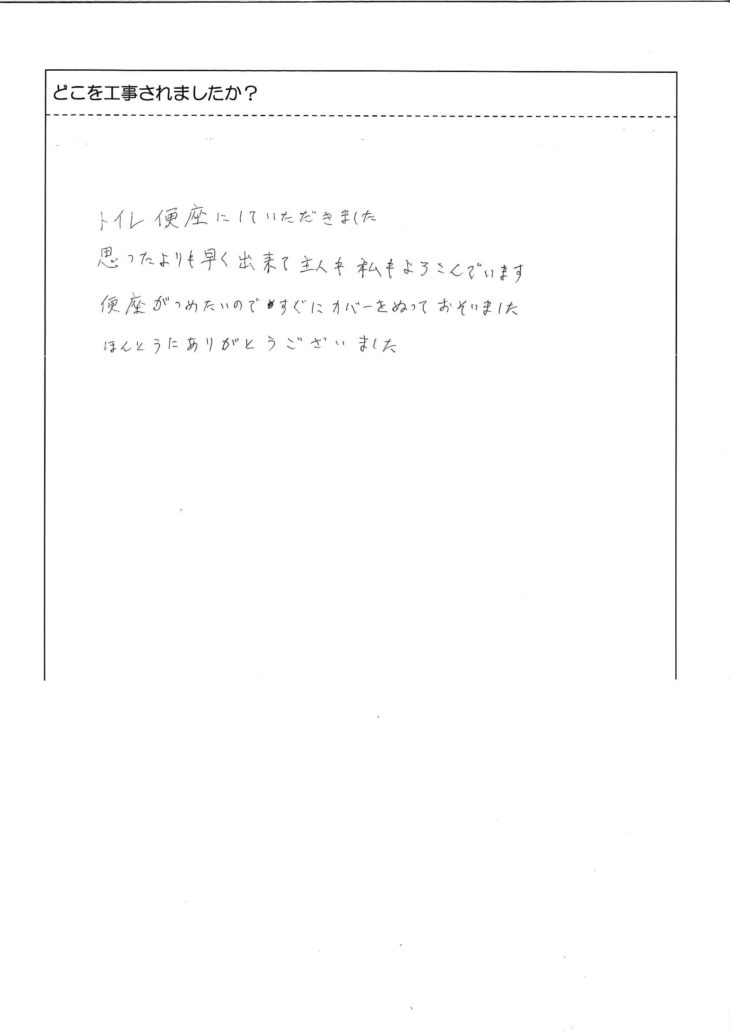 どこを工事されましたか？
トイレ便座にしていただきました
思ったよりも早く出来て主人も私もよろこんでいます
便座がつめたいのですぐにカバーをぬって おそいました
ほんとうにありがとうございました